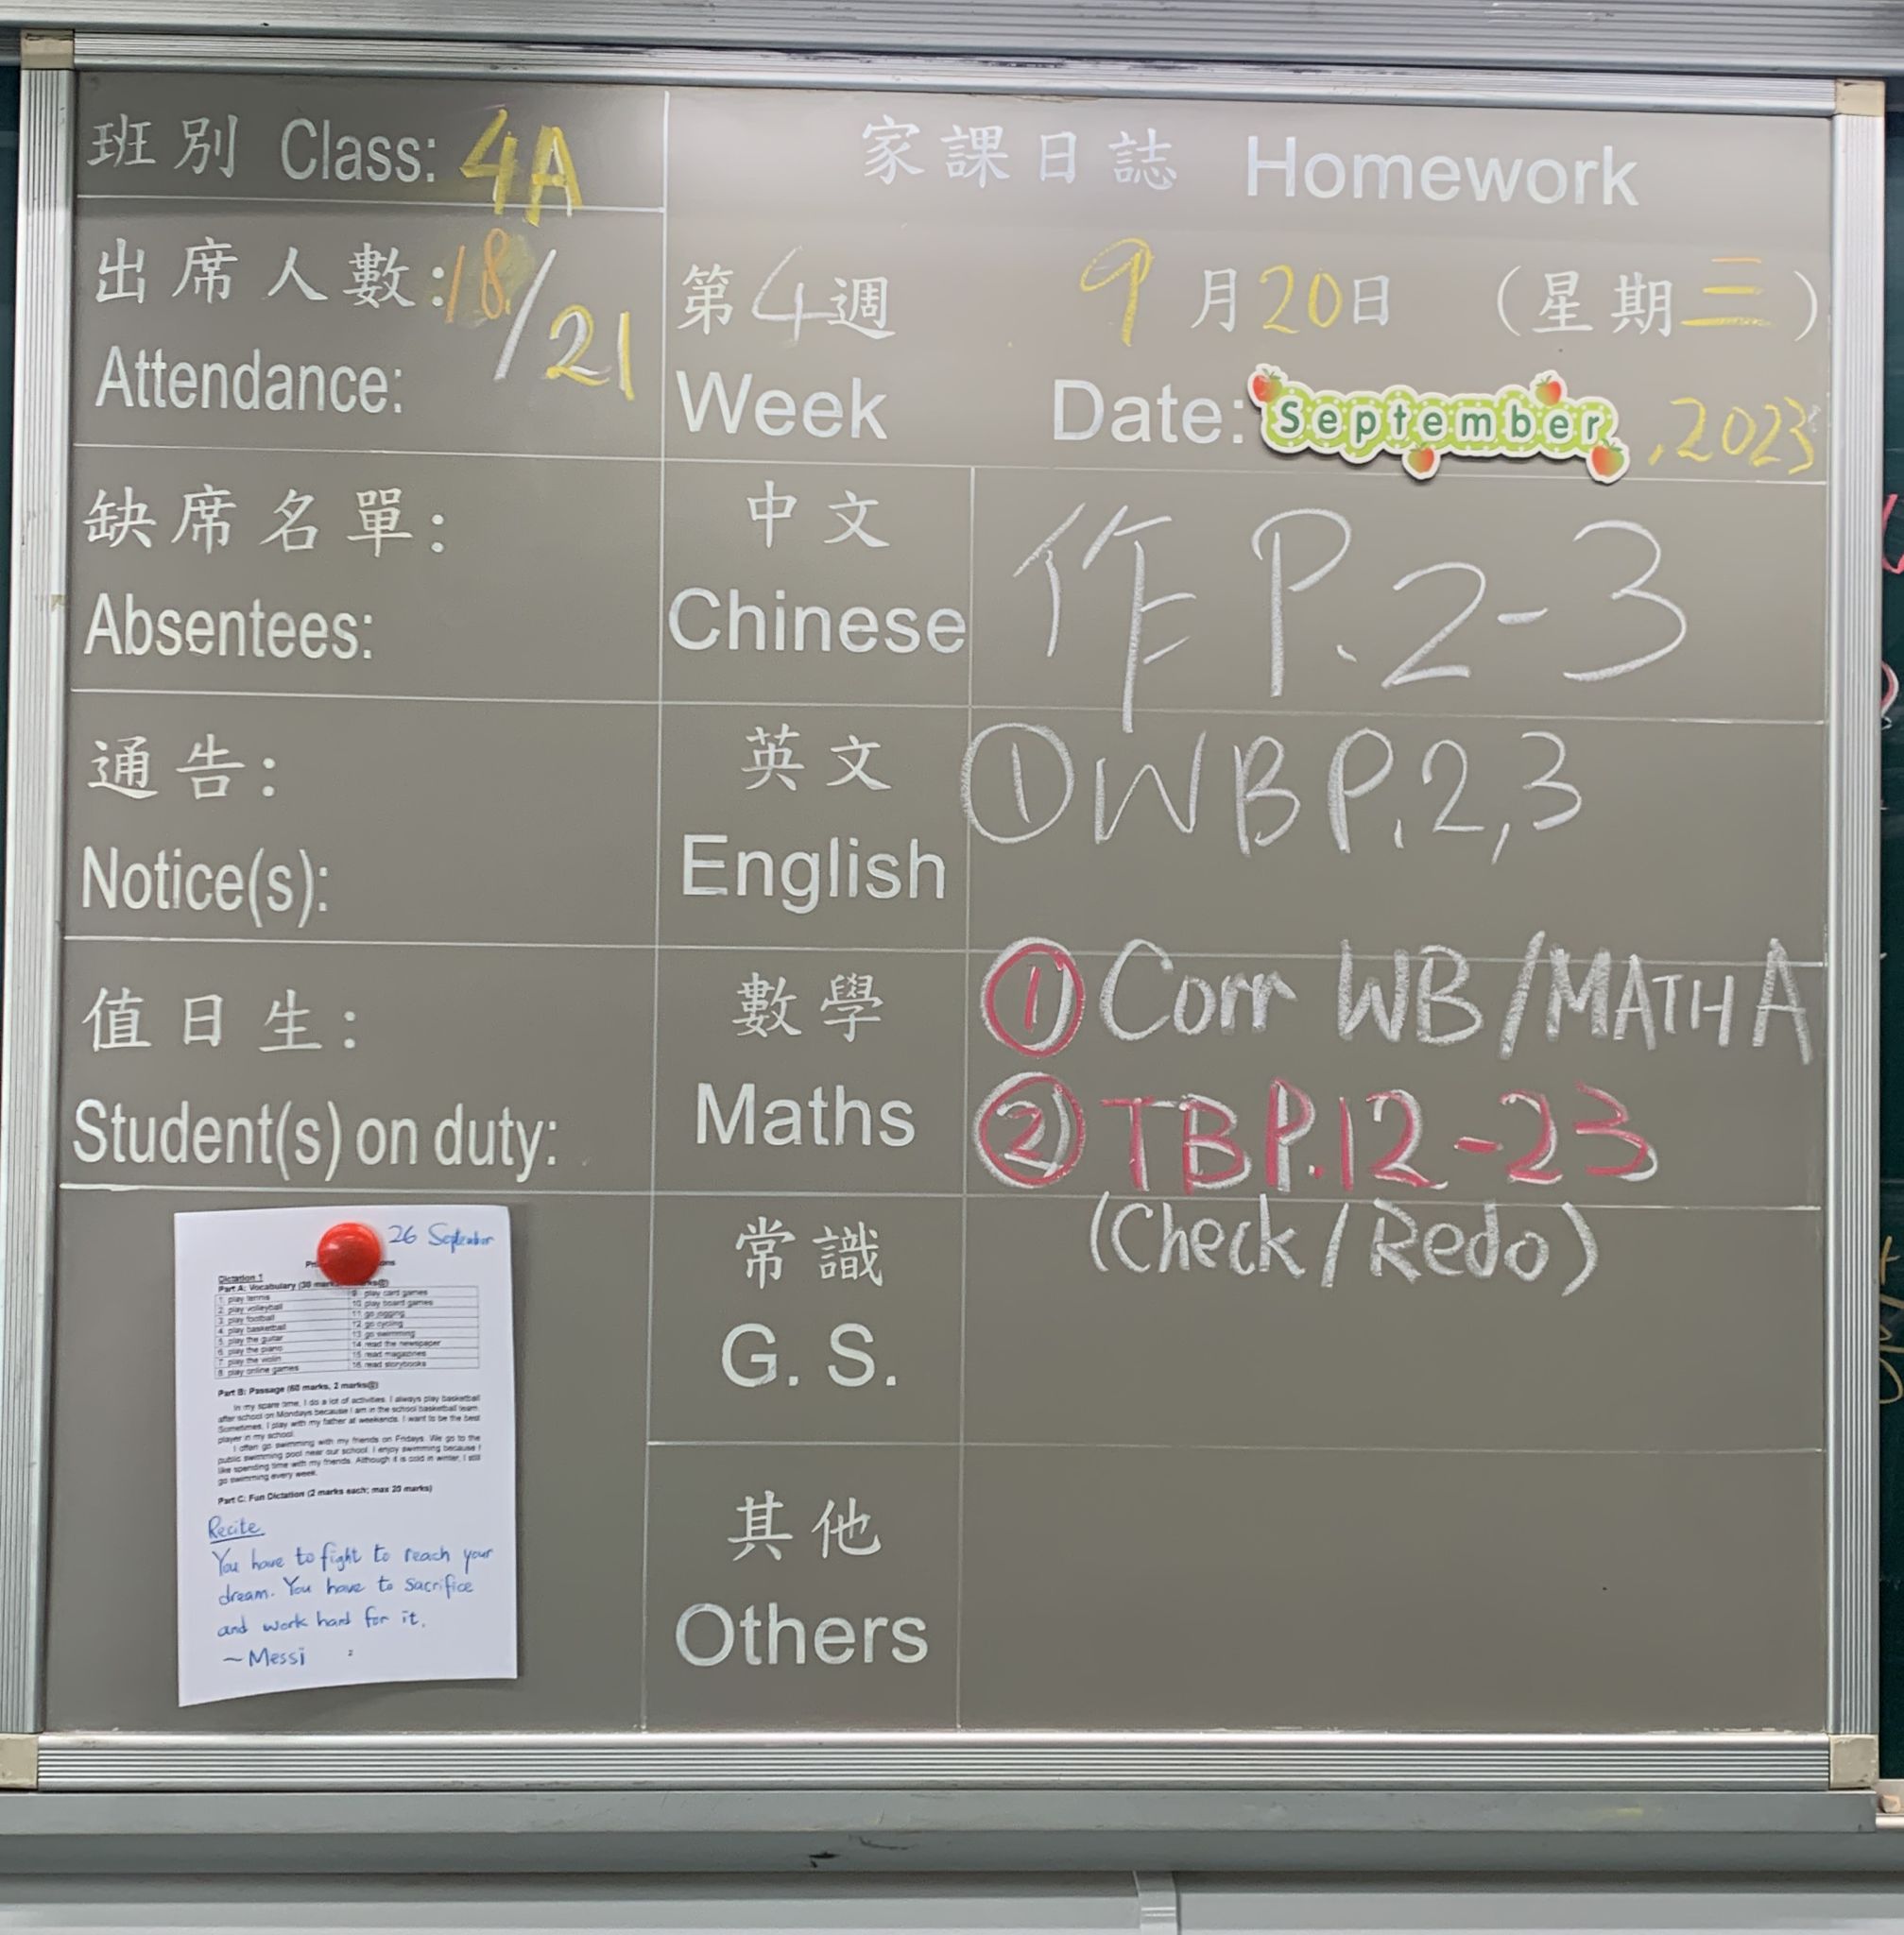 班別 Class: 4A
家課日誌 Homework
出席人數: 18/21
Attendance:
第4週 9月20日 (星期三)
Week Date: September, 2023
缺席名單:
Absentees:
中文
Chinese
作 P.2-3
通告:
Notice(s):
英文
English
① WB P.2,3
值日生:
Student(s) on duty:
數學
Maths
① Corr WB/MATH A
② TB P.12-23
(Check/Redo)
常識
G. S.
其他
Others
26 September
Dictation 1
Part A: Vocabulary (30
1 play tennis
2 play volleyball
3 play football
4 play basketball
5 play the guitar
6 play the piano
7 play the violin
8 play online games
9 play card games
10 play board games
11 go jogging
12 go cycling
13 go swimming
14 read the newspaper
15 read magazines
16 read storybooks
Part B: Passage (60 marks, 2 marks@)
In my spare time, I do a lot of activities. I always play basketball
after school on Mondays because I am in the school basketball team.
Sometimes, I play with my father at weekends. I want to be the best
player in my school.
I often go swimming with my friends on Fridays. We go to the
public swimming pool near our school. I enjoy swimming because I
like spending time with my friends. Although it is cold in winter, I still
go swimming every week.
Part C: Fun Dictation (2 marks each; max 20 marks)
Recite
You have to fight to reach your
dream. You have to sacrifice
and work hard for it.
~Messi